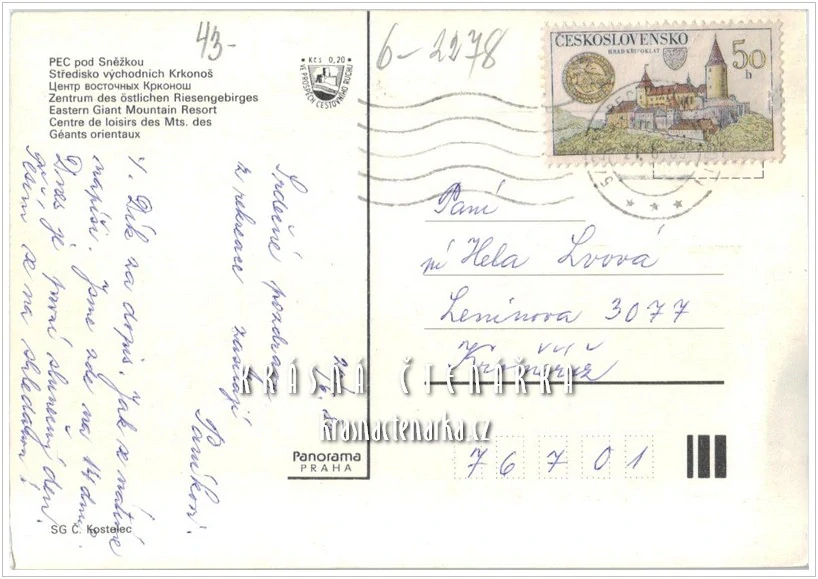 43-
6-2278
PEC pod Sněžkou
Středisko východních Krkonoš
Центр восточных Крконош
Zentrum des östlichen Riesengebirges
Eastern Giant Mountain Resort
Centre de loisirs des Mts. des
Géants orientaux
Kčs 0,20
VE PROSPĚCH CESTOVNÍHO RUCHU
ČESKOSLOVENSKO
HRAD KŘIVOKLÁT
50
h
Srdečné pozdravy
z rekreace zasílají
Paníkovi.
Dík za dopis. Jak se vrátíme
napíši. Jsme zde na 14 dnů.
Dnes je první slunečný den
Těším se na shledanou!
Paní
pí Hela Lvová
Leninova 3077
Kroměříž
76701
KRÁSNÁ ČTENÁŘKA
krasnactenarka.cz
Panorama
PRAHA
SG Č. Kostelec